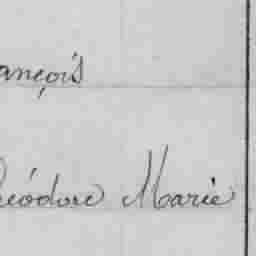 ançois
héodore Marie